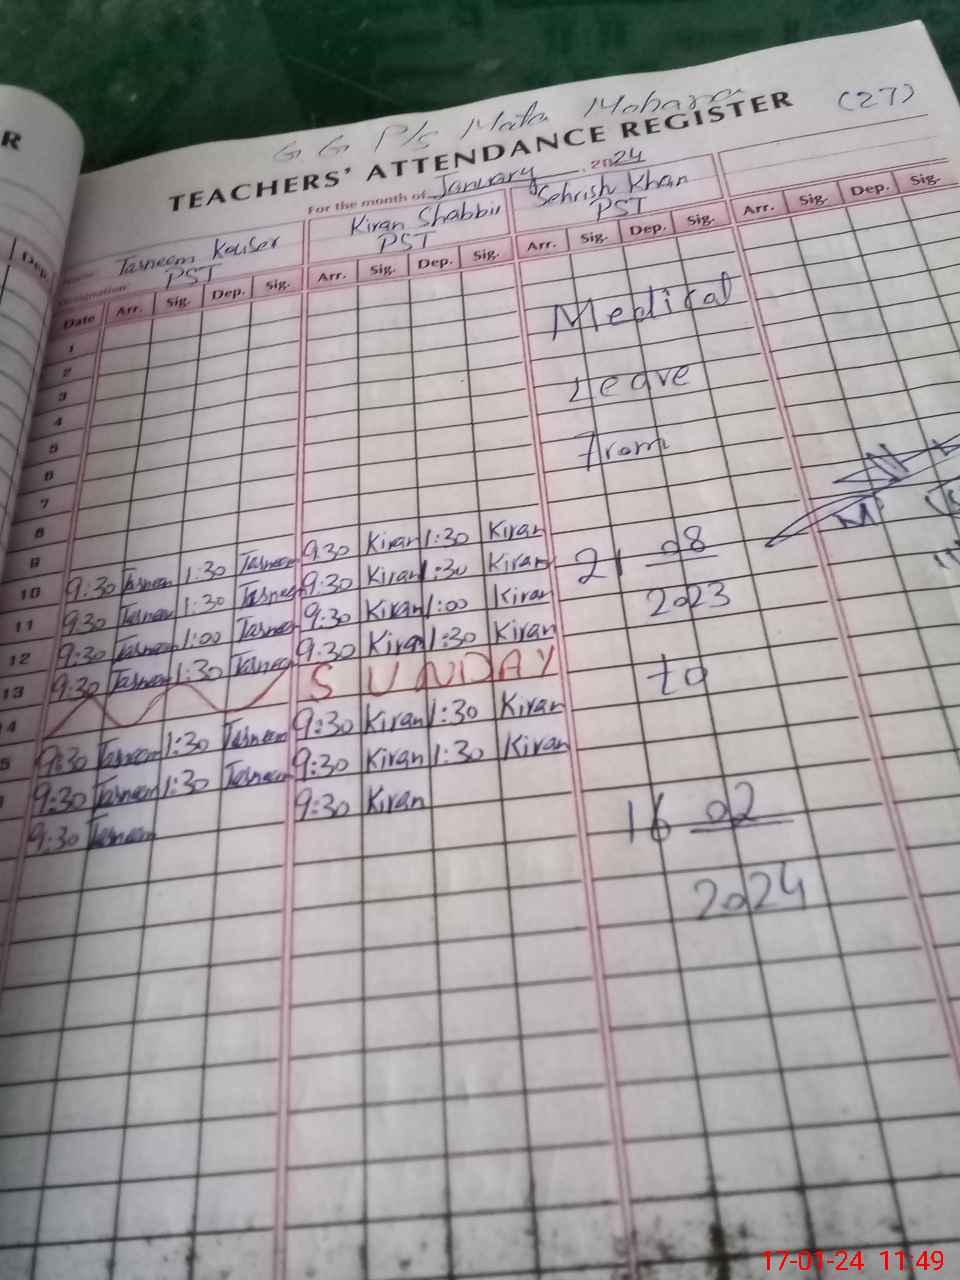 G G P/S Mata Mohara (27)
TEACHERS' ATTENDANCE REGISTER
For the month of January 2024
Tasneem Kouser Kiran Shabbir Sehrish Khan
Designation PST PST PST
Date Arr. Sig. Dep. Sig. Arr. Sig. Dep. Sig. Arr. Sig. Dep. Sig. Arr. Sig. Dep. Sig.
1
2
3
4
5
6
7
8
9
10
11
12
13
Medical
Leave
From
21 08
2023
to
16 02
2024
9:30 Tasneem 1:30 Tasneem 9:30 Kiran 1:30 Kiran
9:30 Tasneem 1:30 Tasneem 9:30 Kiran 1:30 Kiran
9:30 Tasneem 1:00 Tasneem 9:30 Kiran 1:00 Kiran
9:30 Tasneem 1:30 Tasneem 9:30 Kiran 1:30 Kiran
SUNDAY
9:30 Tasneem 1:30 Tasneem 9:30 Kiran 1:30 Kiran
9:30 Tasneem 1:30 Tasneem 9:30 Kiran 1:30 Kiran
9:30 Tasneem 9:30 Kiran
17-01-24 11:49